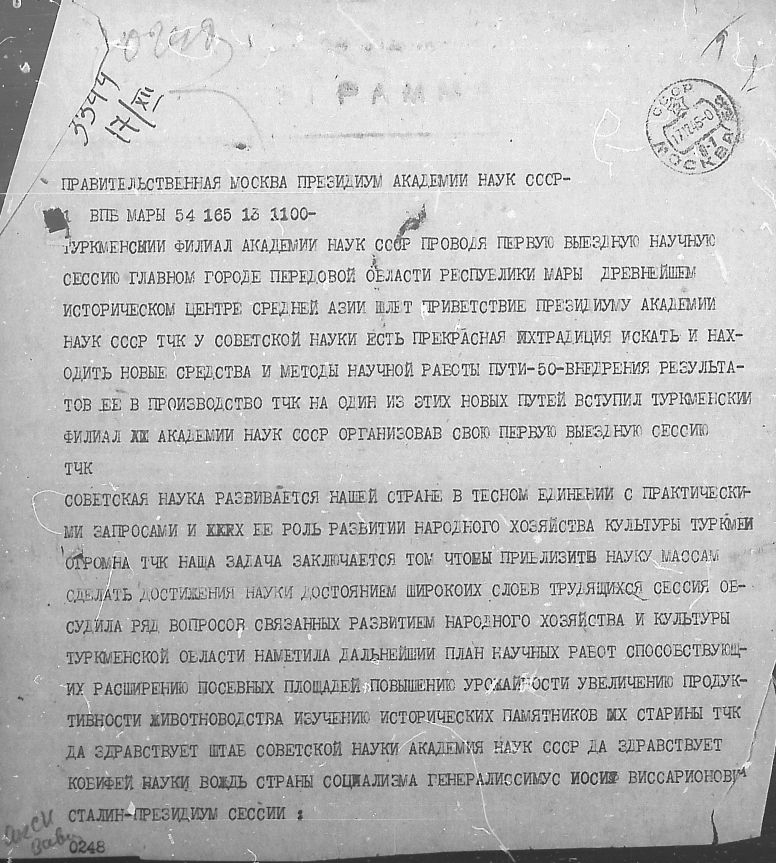 0248
3344
17/XII
ГРАММ
СССР
МОСКВА
ПРАВИТЕЛЬСТВЕННАЯ МОСКВА ПРЕЗИДИУМ АКАДЕМИИ НАУК СССР-
ВПБ МАРЫ 54 165 13 1100-
ТУРКМЕНСКИИ ФИЛИАЛ АКАДЕМИИ НАУК СССР ПРОВОДЯ ПЕРВУЮ ВЫЕЗДНУЮ НАУЧНУЮ
СЕССИЮ ГЛАВНОМ ГОРОДЕ ПЕРЕДОВОЙ ОБЛАСТИ РЕСПУБЛИКИ МАРЫ ДРЕВНЕЙШЕМ
ИСТОРИЧЕСКОМ ЦЕНТРЕ СРЕДНЕЙ АЗИИ ШЛЕТ ПРИВЕТСТВИЕ ПРЕЗИДИУМУ АКАДЕМИИ
НАУК СССР ТЧК У СОВЕТСКОЙ НАУКИ ЕСТЬ ПРЕКРАСНАЯ ТРАДИЦИЯ ИСКАТЬ И НАХ-
ОДИТЬ НОВЫЕ СРЕДСТВА И МЕТОДЫ НАУЧНОЙ РАБОТЫ ПУТИ-50-ВНЕДРЕНИЯ РЕЗУЛЬТА-
ТОВ ЕЕ В ПРОИЗВОДСТВО ТЧК НА ОДИН ИЗ ЭТИХ НОВЫХ ПУТЕЙ ВСТУПИЛ ТУРКМЕНСКИИ
ФИЛИАЛ АКАДЕМИИ НАУК СССР ОРГАНИЗОВАВ СВОЮ ПЕРВУЮ ВЫЕЗДНУЮ СЕССИЮ
ТЧК
СОВЕТСКАЯ НАУКА РАЗВИВАЕТСЯ НАШЕЙ СТРАНЕ В ТЕСНОМ ЕДИНЕНИИ С ПРАКТИЧЕСКИ-
МИ ЗАПРОСАМИ И ЕЕ РОЛЬ РАЗВИТИИ НАРОДНОГО ХОЗЯЙСТВА КУЛЬТУРЫ ТУРКМЕНИ
ОГРОМНА ТЧК НАША ЗАДАЧА ЗАКЛЮЧАЕТСЯ ТОМ ЧТОБЫ ПРИБЛИЗИТЬ НАУКУ МАССАМ
СДЕЛАТЬ ДОСТИЖЕНИЯ НАУКИ ДОСТОЯНИЕМ ШИРОКОИХ СЛОЕВ ТРУДЯЩИХСЯ СЕССИЯ ОБ-
СУДИЛА РЯД ВОПРОСОВ СВЯЗАННЫХ РАЗВИТИЕМ НАРОДНОГО ХОЗЯЙСТВА И КУЛЬТУРЫ
ТУРКМЕНСКОЙ ОБЛАСТИ НАМЕТИЛА ДАЛЬНЕЙШИИ ПЛАН НАУЧНЫХ РАБОТ СПОСОБСТВУЮЩ-
ИХ РАСШИРЕНИЮ ПОСЕВНЫХ ПЛОЩАДЕЙ ПОВЫШЕНИЮ УРОЖАЙНОСТИ УВЕЛИЧЕНИЮ ПРОДУК-
ТИВНОСТИ ЖИВОТНОВОДСТВА ИЗУЧЕНИЮ ИСТОРИЧЕСКИХ ПАМЯТНИКОВ ИХ СТАРИНЫ ТЧК
ДА ЗДРАВСТВУЕТ ШТАБ СОВЕТСКОЙ НАУКИ АКАДЕМИЯ НАУК СССР ДА ЗДРАВСТВУЕТ
КОВИФЕЙ НАУКИ ВОЖДЬ СТРАНЫ СОЦИАЛИЗМА ГЕНЕРАЛИССИМУС ИОСИФ ВИССАРИОНОВИЧ
СТАЛИН-ПРЕЗИДИУМ СЕССИИ :
0248